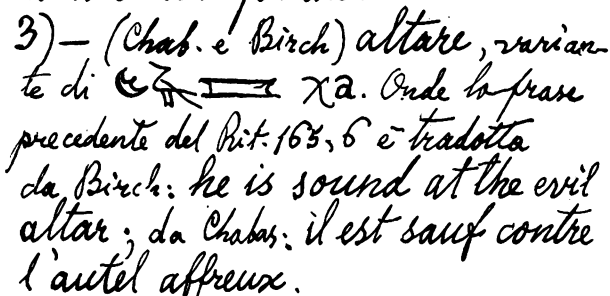 3) — (Chab. e Birch) altare, varian-
te di χa. Onde la frase
precedente del Rit. 163, 6 è tradotta
da Birch: he is sound at the evil
altar; da Chabas: il est sauf contre
l'autel affreux.